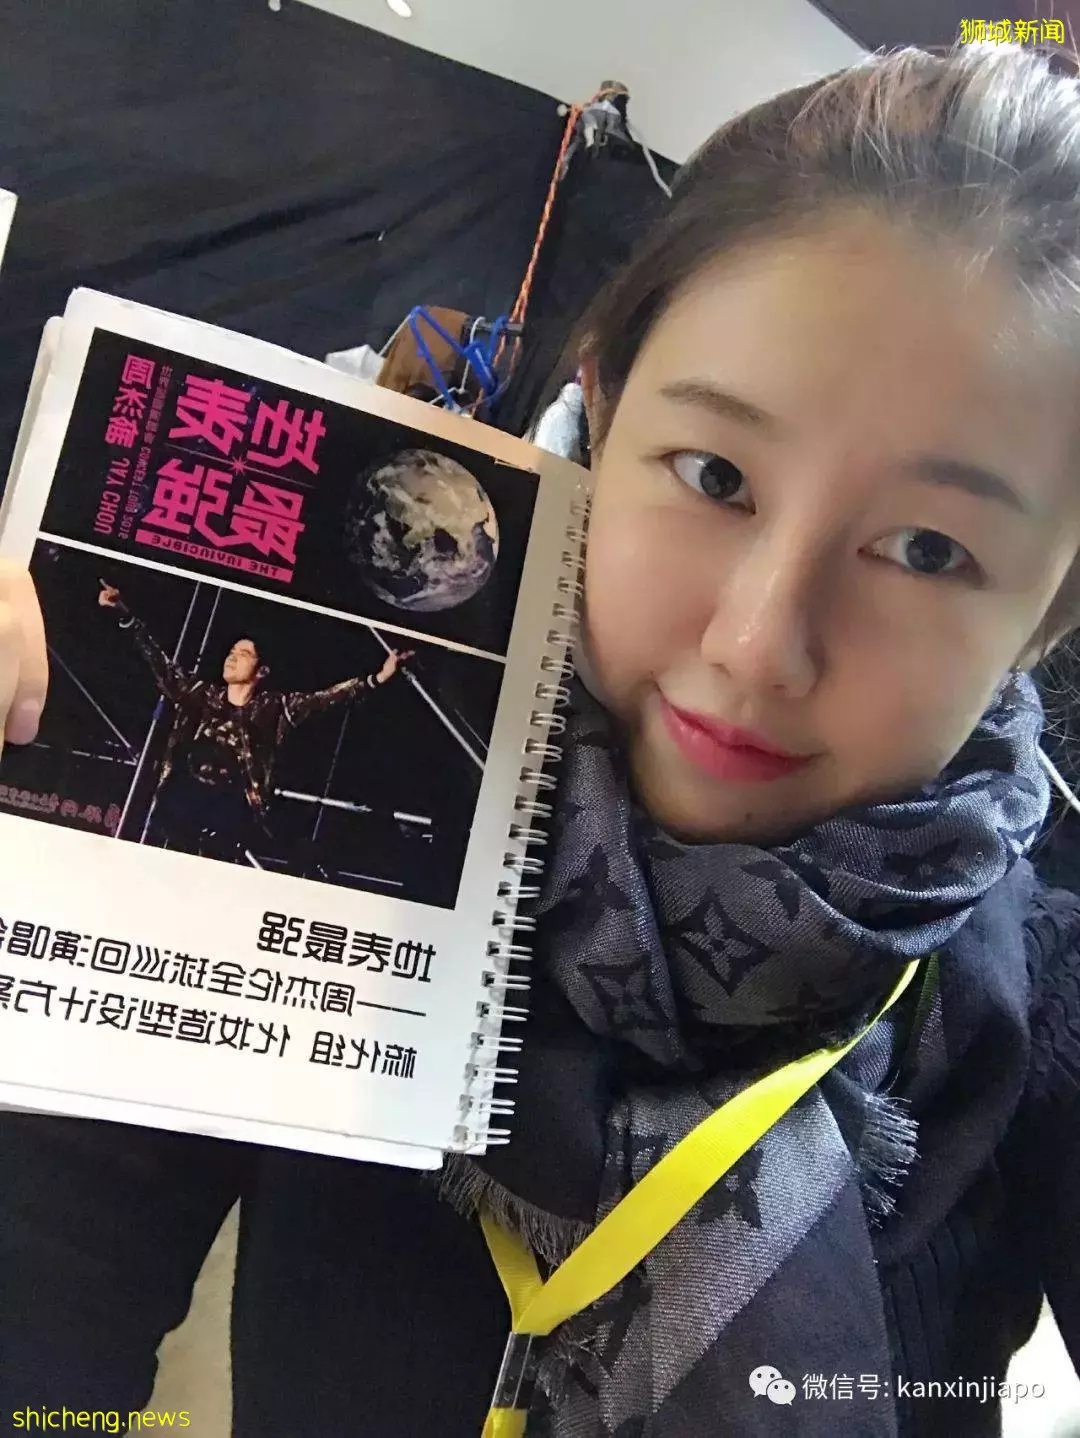 狮城新闻
地表
最强
THE INVINCIBLE
周杰倫 JAY CHOU
CONCERT TOUR 2016
地表最强
——周杰伦全球巡回演唱会
梳化组 化妆造型设计方案
微信号: kanxinjiapo
shicheng.news